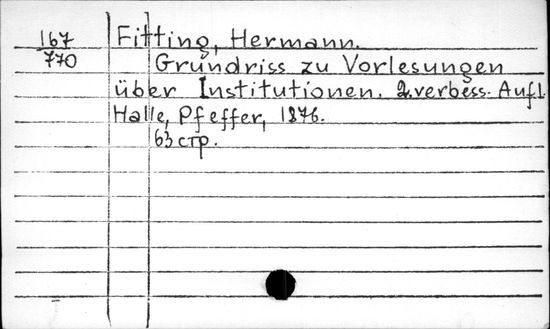 167
770
Fitting, Hermann.
Grundriss zu Vorlesungen
über Institutionen. 2.verbess. Aufl.
Halle, Pfeffer, 1876.
63 стр.